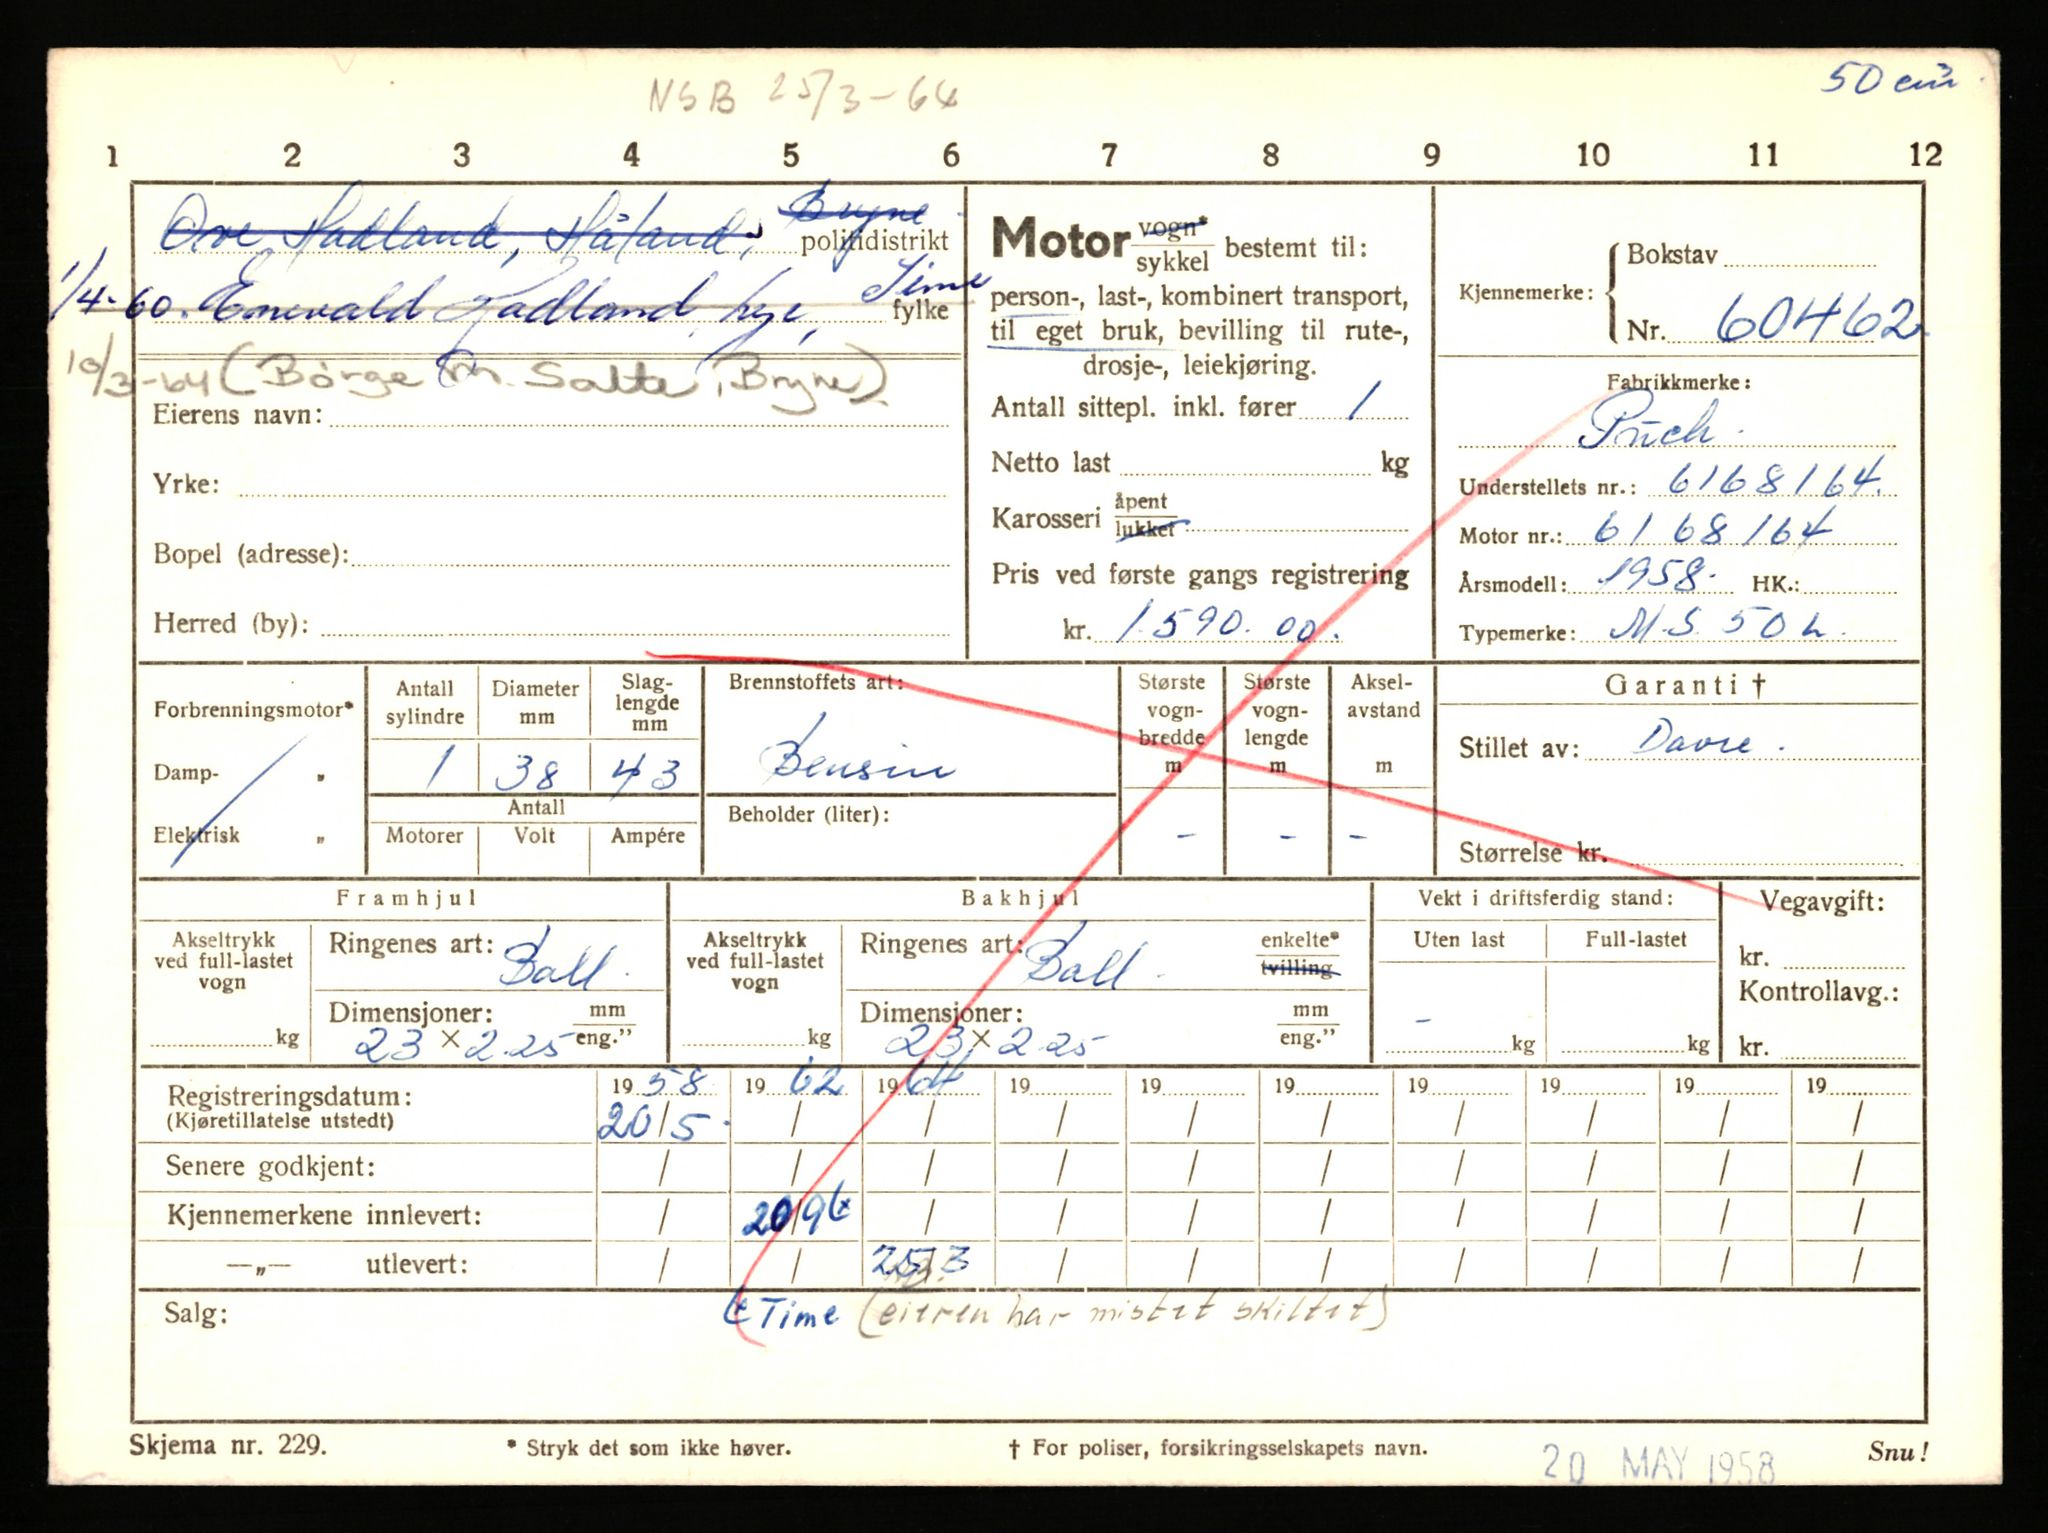 NSB 25/3-64
50 cm³
1 2 3 4 5 6 7 8 9 10 11 12
Ove Hadland, Håland, Bryne
politidistrikt
1/4-60. Enevald Hadland, Lye, Time
fylke
10/3-64 (Børge M. Salte, Bryne)
Eierens navn:
Yrke:
Bopel (adresse):
Herred (by):
Motor vogn* / sykkel bestemt til:
person-, last-, kombinert transport,
til eget bruk, bevilling til rute-,
drosje-, leiekjøring.
Antall sittepl. inkl. fører 1
Netto last kg
Karosseri åpent / lukket
Pris ved første gangs registrering
kr. 1.590.00.
Kjennemerke: Bokstav
Nr. 60462
Fabrikkmerke:
Puch.
Understellets nr.: 6168164.
Motor nr.: 6168164
Årsmodell: 1958. HK.:
Typemerke: M.S. 50 L.
Forbrenningsmotor*
Damp- „
Elektrisk „
Antall sylindre
Diameter mm
Slag-lengde mm
1 38 43
Antall
Motorer Volt Ampére
Brennstoffets art:
Bensin
Beholder (liter):
Største vogn-bredde m
Største vogn-lengde m
Aksel-avstand m
- - -
Garanti †
Stillet av: Davre.
Størrelse kr.
Framhjul
Akseltrykk ved full-lastet vogn
kg
Ringenes art: Ball.
Dimensjoner: mm / eng.”
23 x 2.25
Bakhjul
Akseltrykk ved full-lastet vogn
kg
Ringenes art: Ball.
enkelte* / tvilling
Dimensjoner: mm / eng.”
23 x 2.25
Vekt i driftsferdig stand:
Uten last Full-lastet
- kg kg
Vegavgift:
kr.
Kontrollavg.:
kr.
Registreringsdatum: 19 58 19 62 19 64 19 19 19 19 19 19 19
(Kjøretillatelse utstedt) 20/5. / / / / / / / / /
Senere godkjent: / / / / / / / / / /
Kjennemerkene innlevert: / 20/9 / / / / / / / /
—„— utlevert: / / 25/3 / / / / / / /
Salg:
Time (eieren har mistet skiltet)
Skjema nr. 229.
* Stryk det som ikke høver.
† For poliser, forsikringsselskapets navn.
20 MAY 1958
Snu!